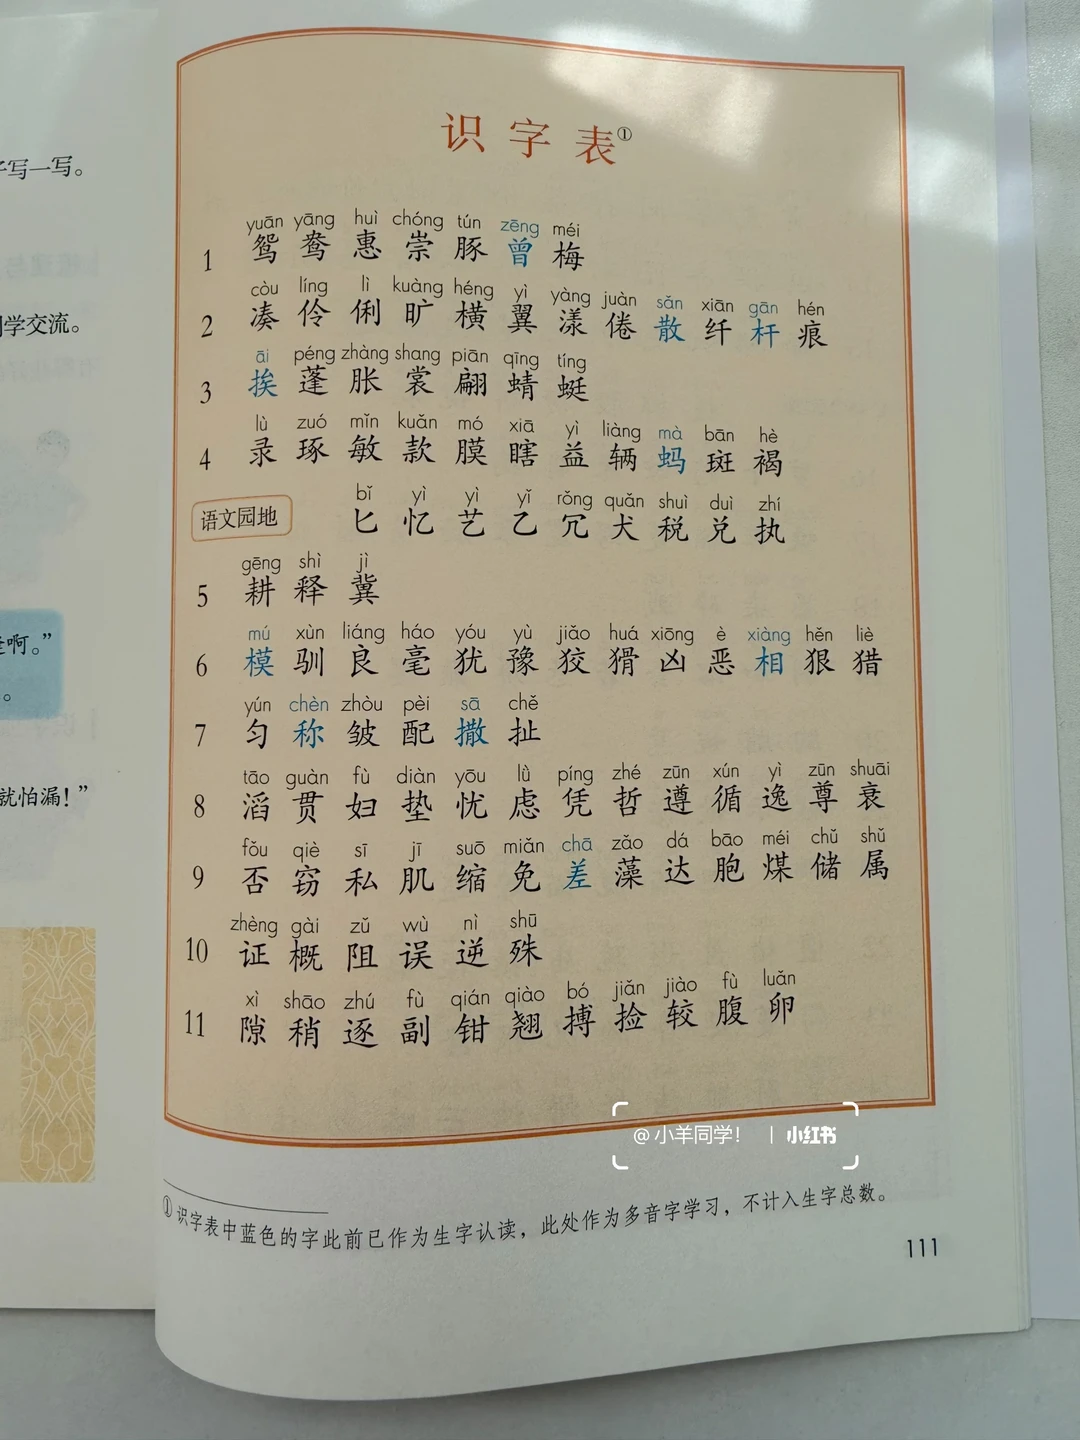 子写一写。
同学交流。
啊。”
。
就怕漏！”
识字表①
yuān yāng huì chóng tún zēng méi
1 鸳 鸯 惠 崇 豚 曾 梅
còu líng lì kuàng héng yì yàng juàn sǎn xiān gān hén
2 凑 伶 俐 旷 横 翼 漾 倦 散 纤 杆 痕
āi péng zhàng shang piān qīng tíng
3 挨 蓬 胀 裳 翩 蜻 蜓
lù zuó mǐn kuǎn mó xiā yì liàng mà bān hè
4 录 琢 敏 款 膜 瞎 益 辆 蚂 斑 褐
bǐ yì yì yǐ rǒng quǎn shuì duì zhí
语文园地 匕 忆 艺 乙 冗 犬 税 兑 执
gēng shì jì
5 耕 释 冀
mú xùn liáng háo yóu yù jiǎo huá xiōng è xiàng hěn liè
6 模 驯 良 毫 犹 豫 狡 猾 凶 恶 相 狠 猎
yún chèn zhòu pèi sā chě
7 匀 称 皱 配 撒 扯
tāo guàn fù diàn yōu lǜ píng zhé zūn xún yì zūn shuāi
8 滔 贯 妇 垫 忧 虑 凭 哲 遵 循 逸 尊 衰
fǒu qiè sī jī suō miǎn chā zǎo dá bāo méi chǔ shǔ
9 否 窃 私 肌 缩 免 差 藻 达 胞 煤 储 属
zhèng gài zǔ wù nì shū
10 证 概 阻 误 逆 殊
xì shāo zhú fù qián qiào bó jiǎn jiào fù luǎn
11 隙 稍 逐 副 钳 翘 搏 捡 较 腹 卵
@小羊同学！ | 小红书
①识字表中蓝色的字此前已作为生字认读，此处作为多音字学习，不计入生字总数。
111